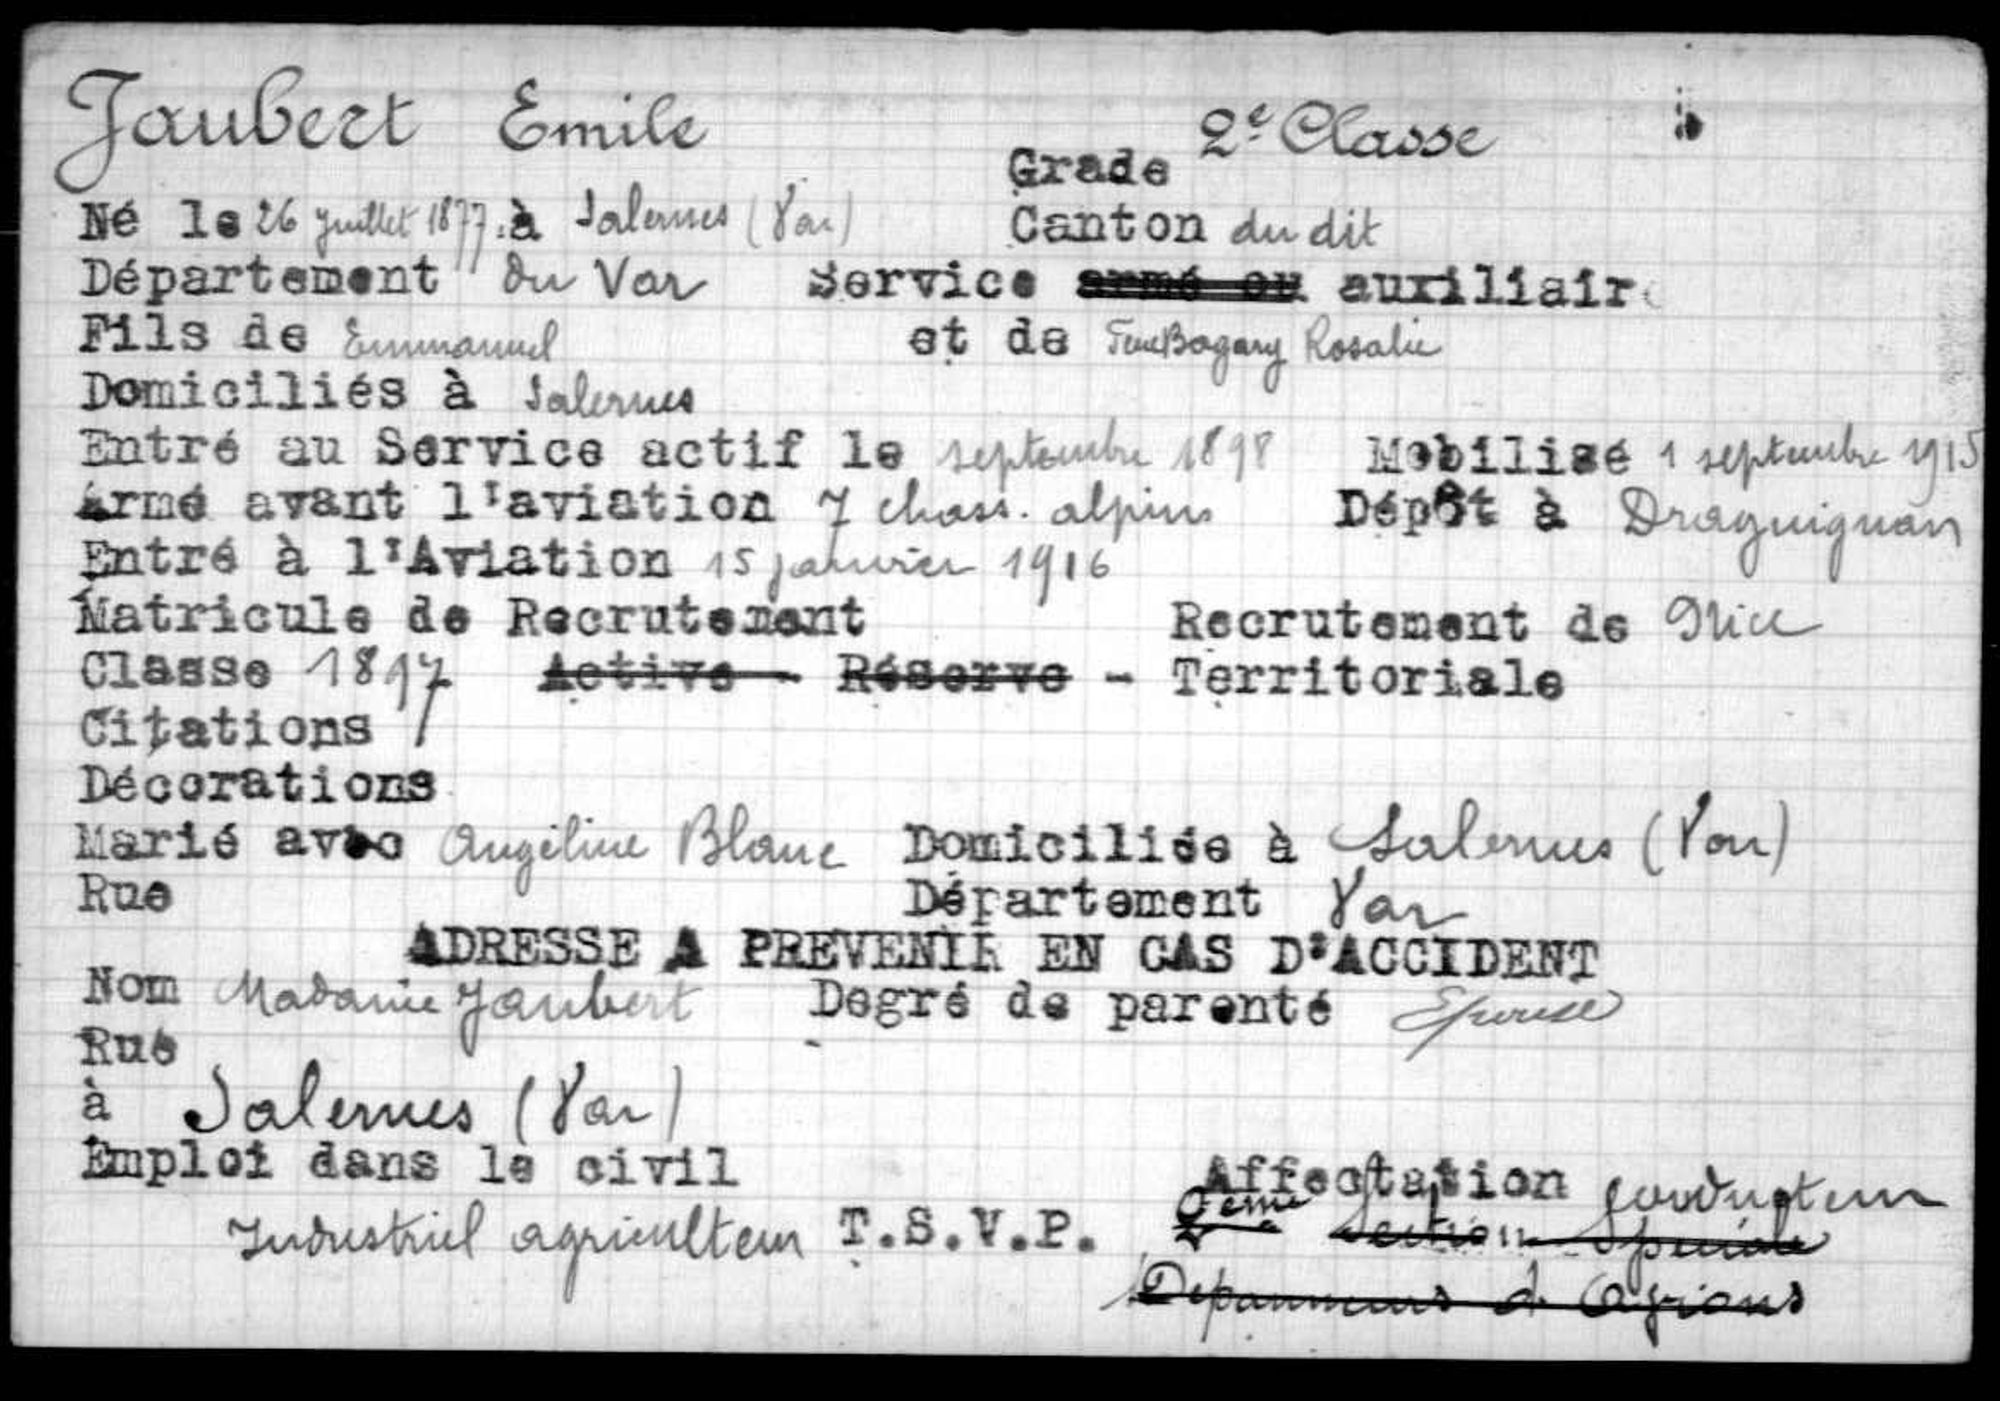 Jaubert Emile
Grade 2e Classe
Né le 26 Juillet 1877 à Salernes (Var) Canton du dit
Département du Var Service armé ou auxiliaire
Fils de Emmanuel et de Feue Bagary Rosalie
Domiciliés à Salernes
Entré au Service actif le septembre 1898 Mobilisé 1 septembre 1915
Arme avant l'aviation 7 chass. alpins Dépôt à Draguignan
Entré à l'Aviation 15 janvier 1916
Matricule de Recrutement Recrutement de Nice
Classe 1897 Active - Réserve - Territoriale
Citations
Décorations
Marié avec Angéline Blanc Domiciliée à Salernes (Var)
Rue Département Var
ADRESSE A PREVENIR EN CAS D'ACCIDENT
Nom Madame Jaubert Degré de parenté Epouse
Rue
à Salernes (Var)
Emploi dans le civil
Affectation conducteur
Industriel agriculteur T.S.V.P. section spéciale
Depanneurs d' Avions